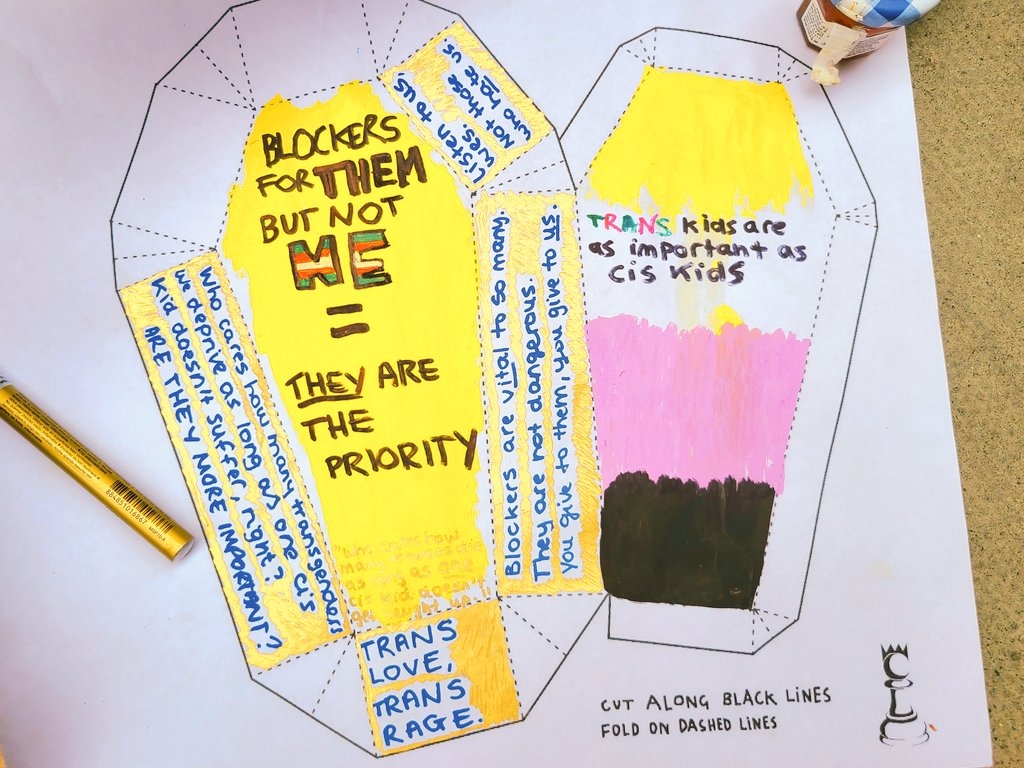 BLOCKERS
FOR THEM
BUT NOT
ME
=
THEY ARE
THE
PRIORITY
"who cares how
many transgenders
as long as one
cis kid doesn't
get caught up
Who cares how many transgenders
we deprive as long as one cis
Kid doesn't suffer, right?
ARE THEY MORE IMPORTANT?
Listen to us
Blockers are vital to so many.
They are not dangerous.
you give to them, you give to us.
TRANS
LOVE,
TRANS
RAGE.
TRANS kids are
as important as
cis kids
CUT ALONG BLACK LINES
FOLD ON DASHED LINES
CLC